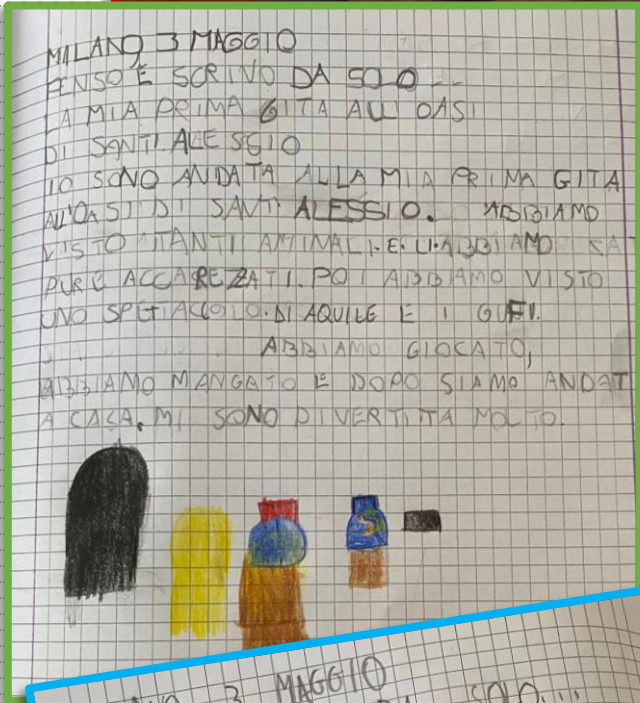 MILANO, 3 MAGGIO
PENSO E SCRIVO DA SOLO...
LA MIA PRIMA GITA ALL'OASI
DI SANT'ALESSIO
IO SONO ANDATA ALLA MIA PRIMA GITA
ALL'OASI DI SANT'ALESSIO. ABBIAMO
VISTO TANTI AMINALI E LI ABBIAMO
PURE ACCAREZZATI. POI ABBIAMO VISTO
UNO SPETTACOLO DI AQUILE E I GUFI.
ABBIAMO GIOCATO,
ABBIAMO MANGATO E DOPO SIAMO ANDAT
A CASA. MI SONO DIVERTITA MOLTO.
3 MAGGIO